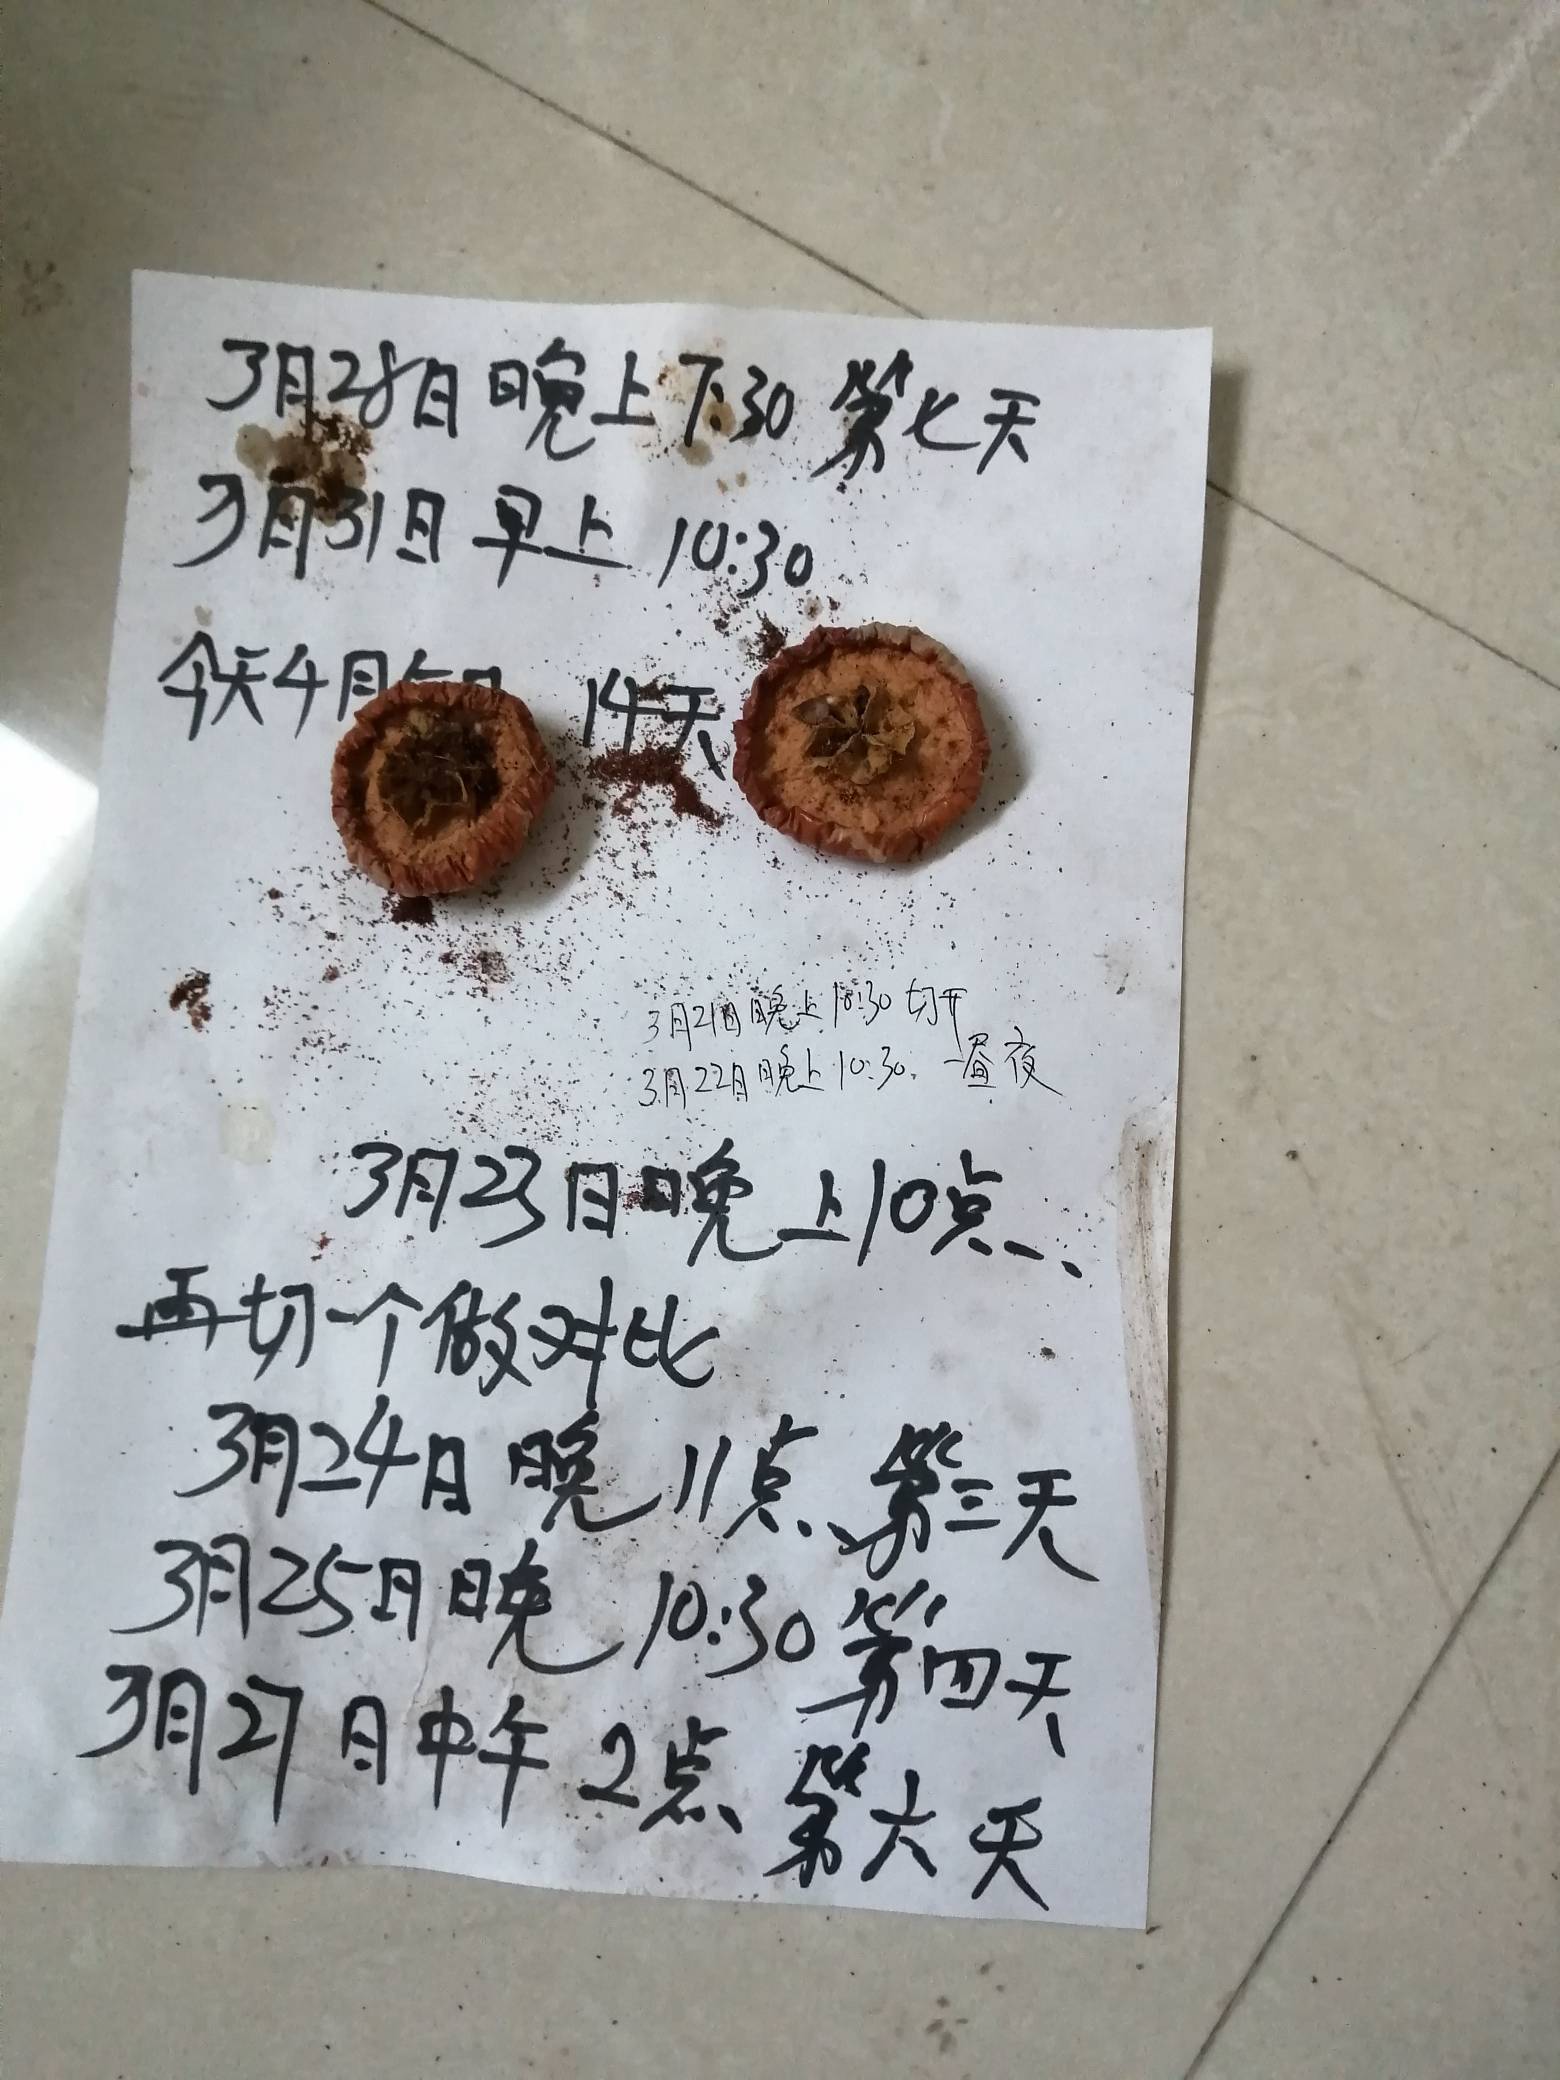 3月28日晚上7:30 第七天
3月31日早上 10:30
今天4月 14天
3月21日晚上10:30切开
3月22日晚上10:30. 一昼夜
3月23日晚上10点、
再切一个做对比
3月24日晚11点、第三天
3月25日晚10:30第四天
3月27日中午2点、第六天